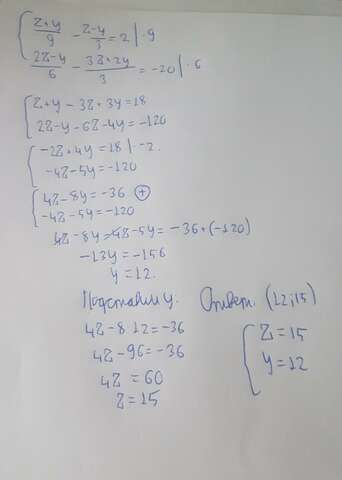 { (z+y)/9 - (z-y)/3 = 2 | · 9
{ (2z-y)/6 - (3z+2y)/3 = -20 | · 6
{ z+y - 3z + 3y = 18
{ 2z-y - 6z-4y = -120
{ -2z+4y = 18 | · -2
{ -4z-5y = -120
{ 4z-8y = -36 (+)
{ -4z-5y = -120
4z-8y-4z-5y = -36+(-120)
-13y = -156
y = 12.
Подставим y.
4z-8·12 = -36
4z-96 = -36
4z = 60
z = 15
Ответ: (12;15)
{ z = 15
{ y = 12